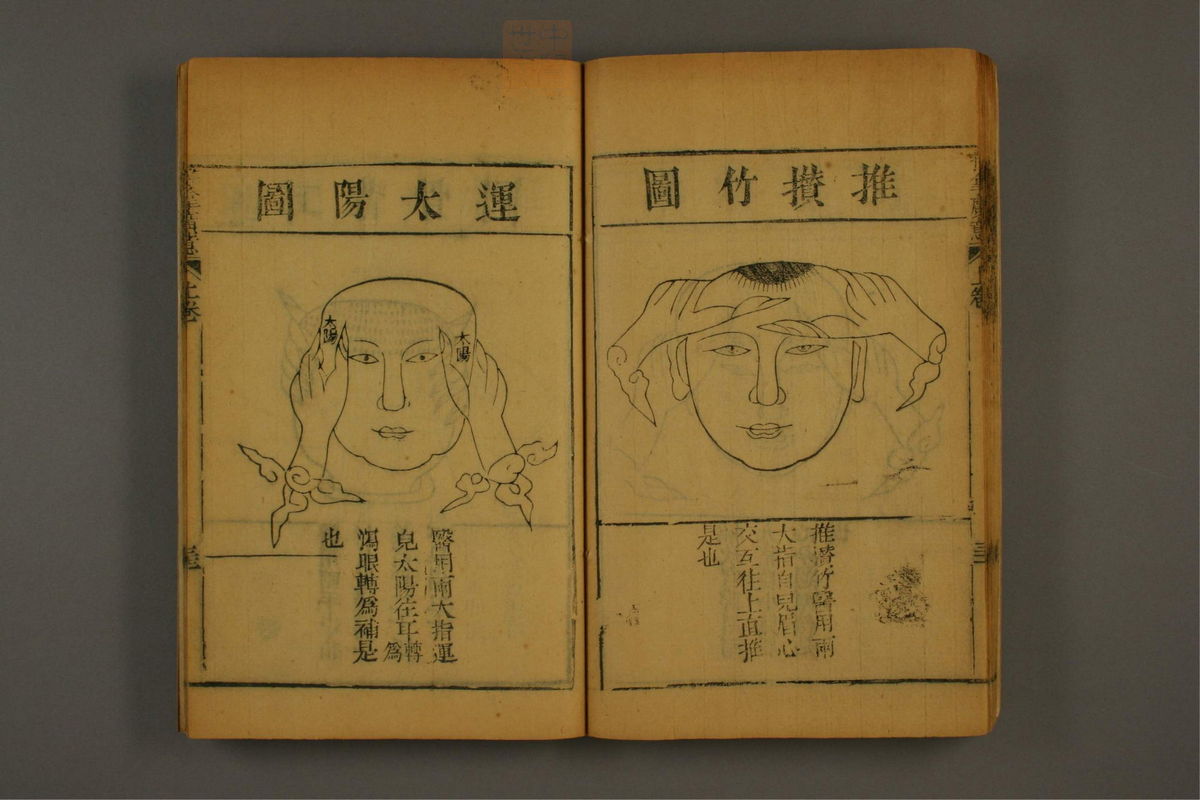 推攢竹圖
推攢竹醫用兩
大指自兒眉心
交互往上直推
是也
運太陽圖
太陽
太陽
醫用兩大指運
兒太陽往耳轉為
瀉眼轉為補是
也
上卷